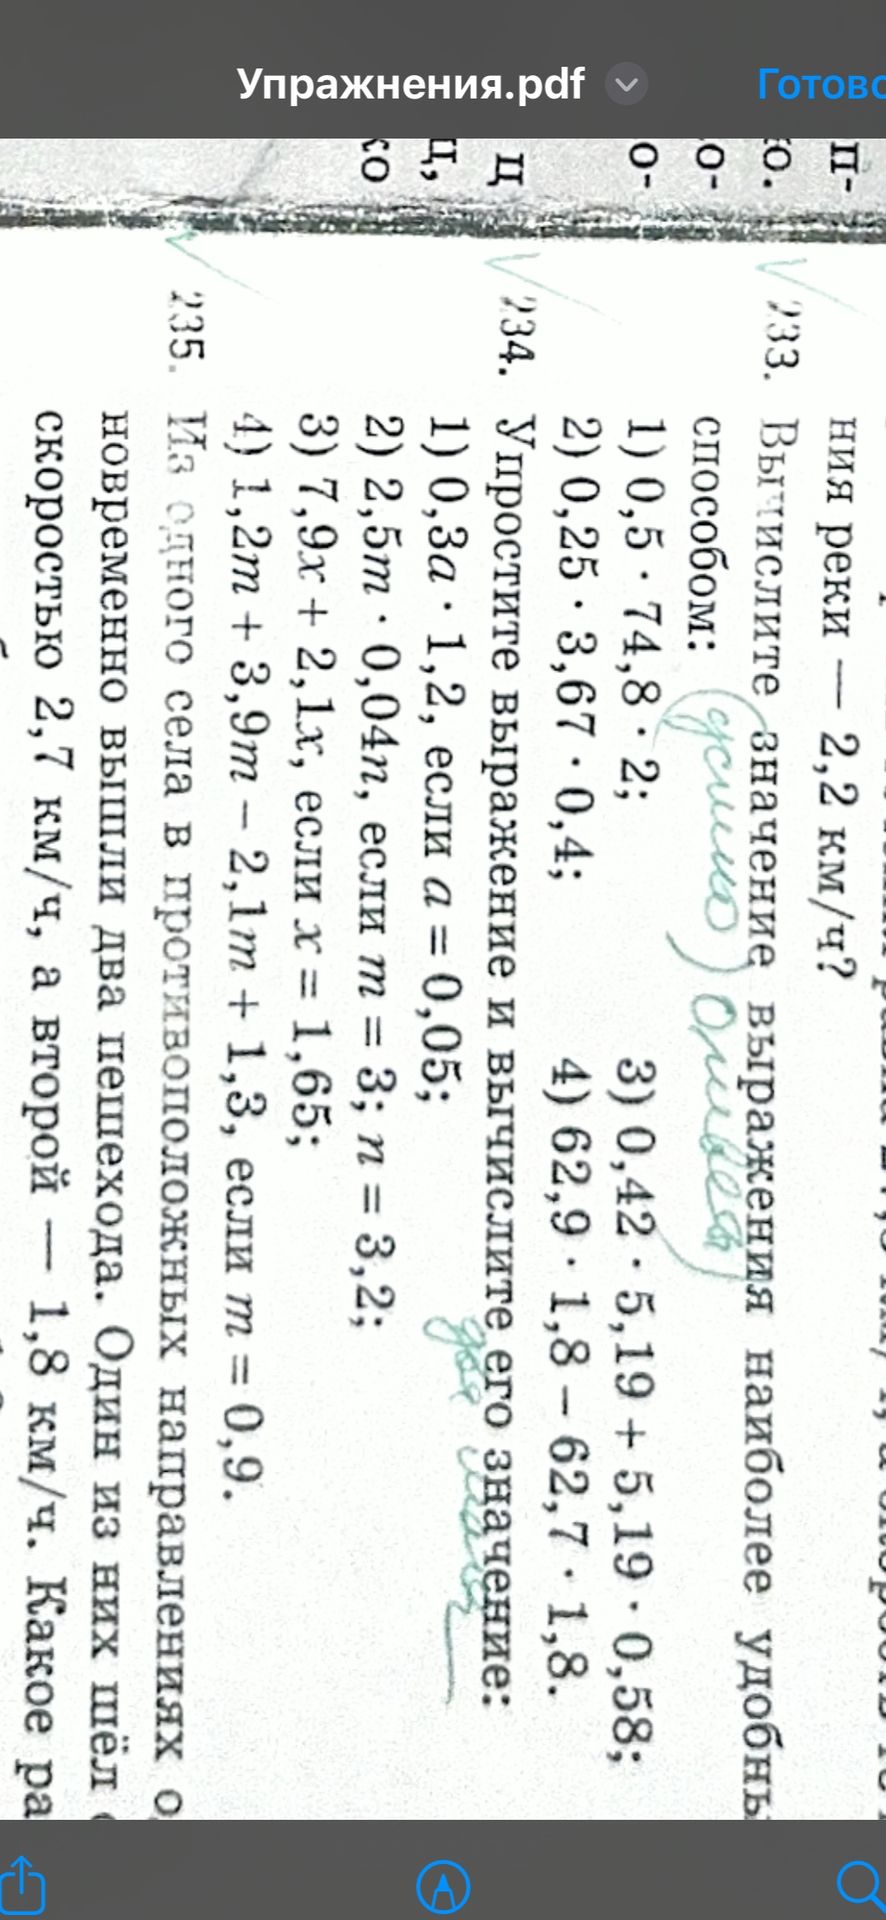 Упражнения.pdf
Готово
ния реки — 2,2 км/ч?
233. Вычислите значение выражения наиболее удобны
способом: (устно)
1) 0,5 · 74,8 · 2; 3) 0,42 · 5,19 + 5,19 · 0,58;
2) 0,25 · 3,67 · 0,4; 4) 62,9 · 1,8 − 62,7 · 1,8.
234. Упростите выражение и вычислите его значение:
1) 0,3a · 1,2, если a = 0,05;
2) 2,5m · 0,04n, если m = 3; n = 3,2;
3) 7,9x + 2,1x, если x = 1,65;
4) 1,2m + 3,9m − 2,1m + 1,3, если m = 0,9.
235. Из одного села в противоположных направлениях о
новременно вышли два пешехода. Один из них шёл
скоростью 2,7 км/ч, а второй — 1,8 км/ч. Какое ра